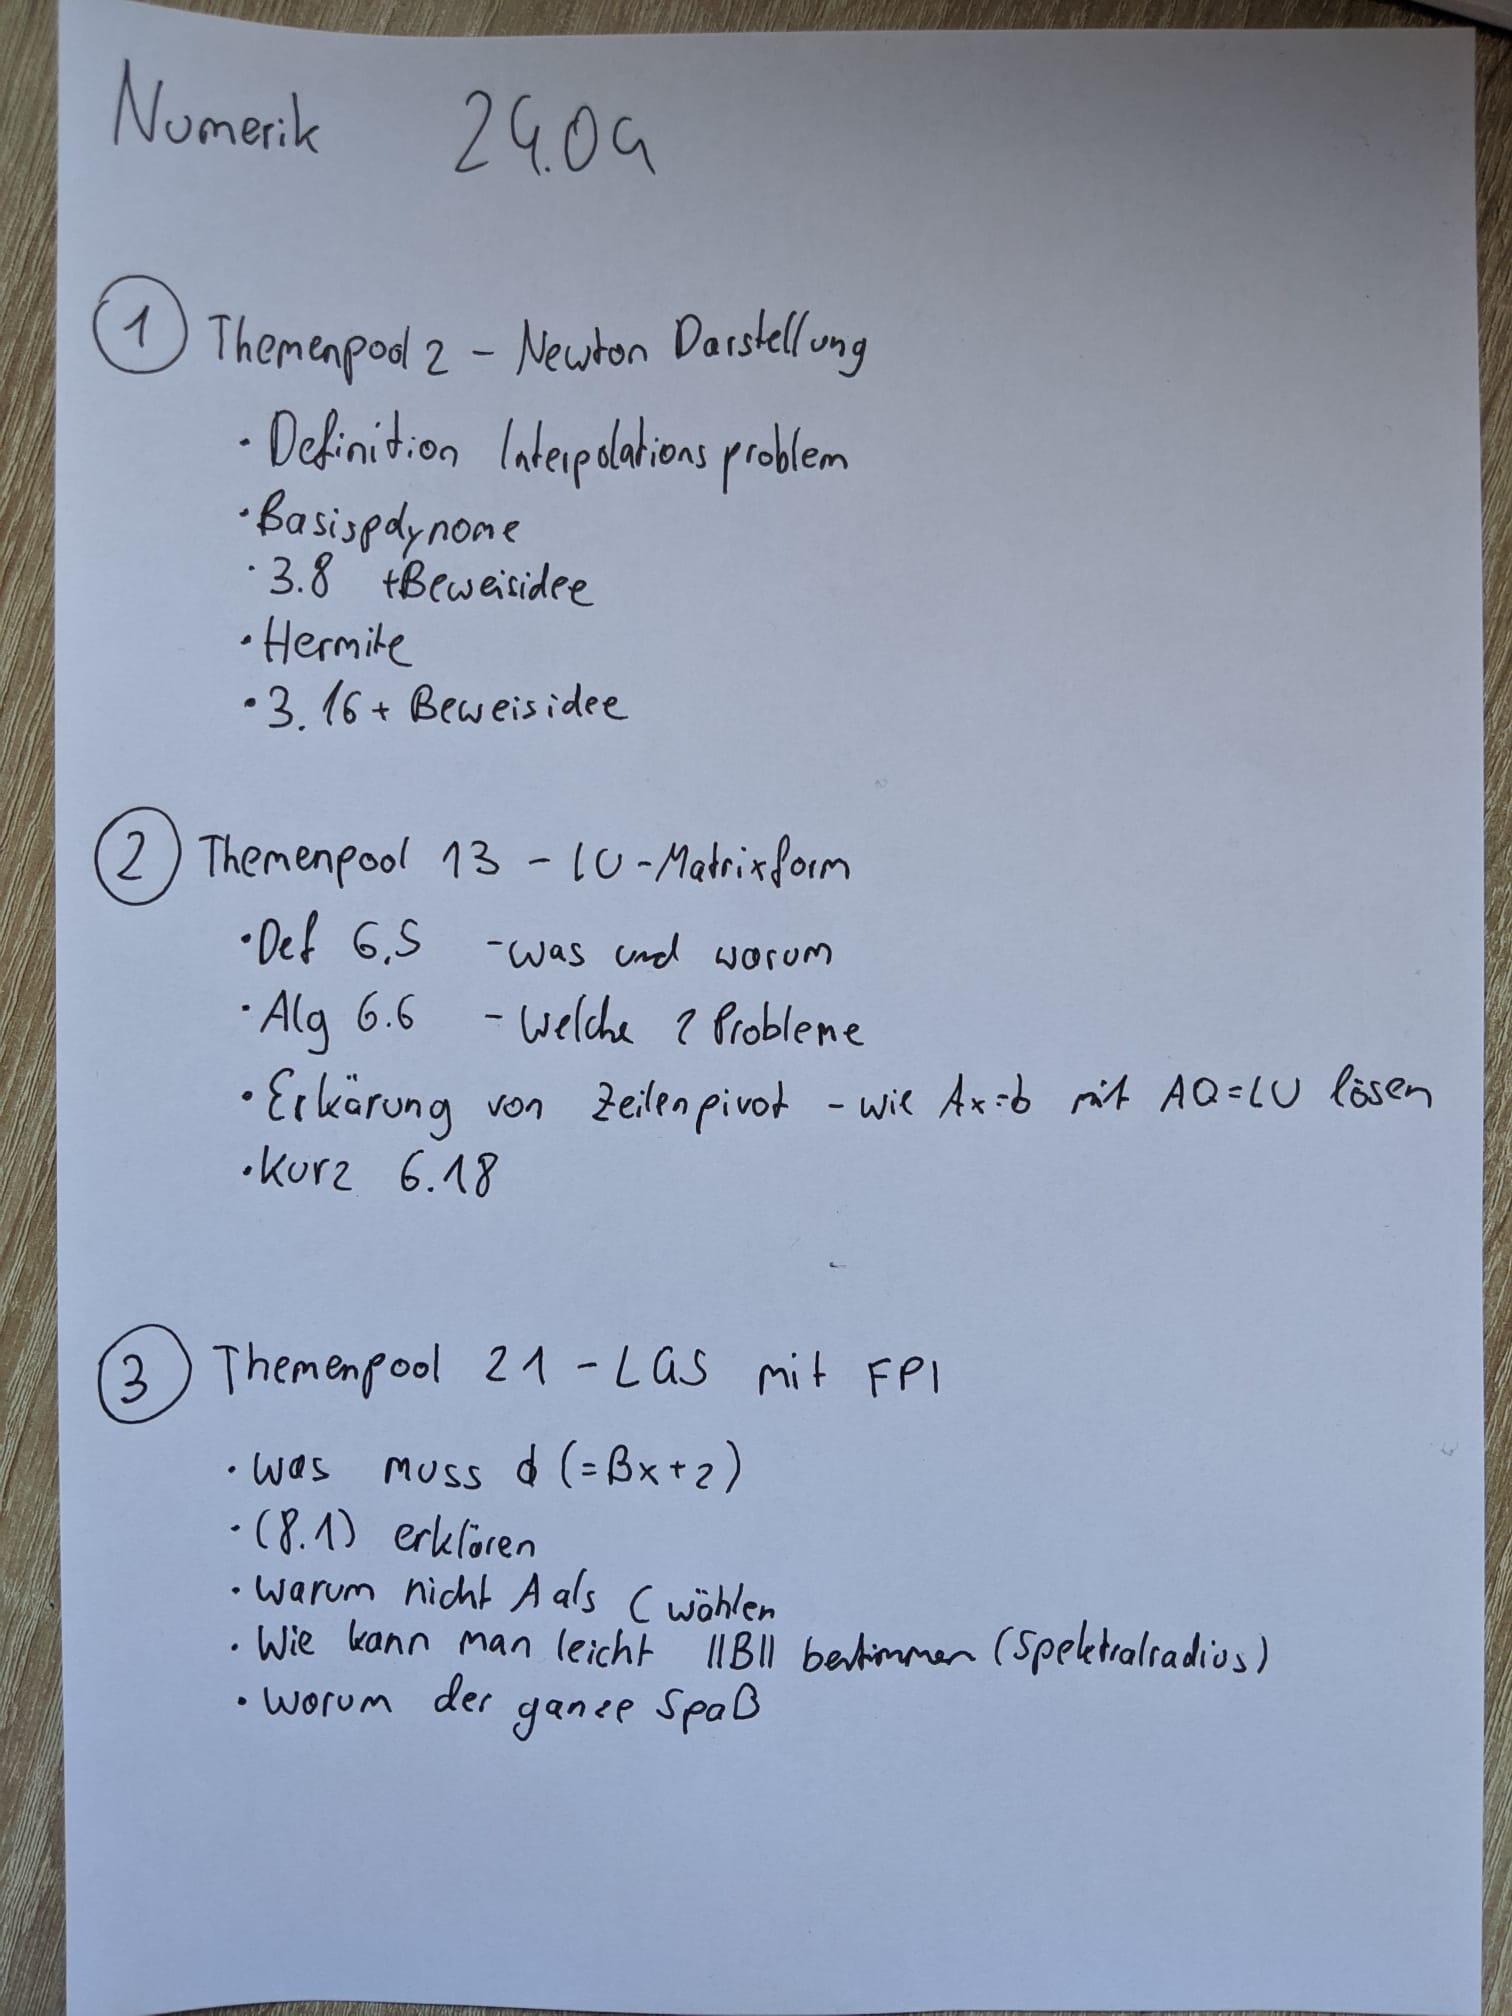 Numerik 24.09
1 Themenpool 2 - Newton Darstellung
· Definition Interpolationsproblem
· Basispolynome
· 3.8 + Beweisidee
· Hermite
· 3.16 + Beweisidee
2 Themenpool 13 - LU-Matrixform
· Def 6.5 - was und warum
· Alg 6.6 - Welche 2 Probleme
· Erkärung von Zeilenpivot - wie Ax=b mit AQ=LU lösen
· Kurz 6.18
3 Themenpool 21 - LGS mit FPI
· Was muss ϕ (=Bx+z)
· (8.1) erklären
· Warum nicht A als C wählen
· Wie kann man leicht ||B|| bestimmen (Spektralradius)
· Worum der ganze Spaß